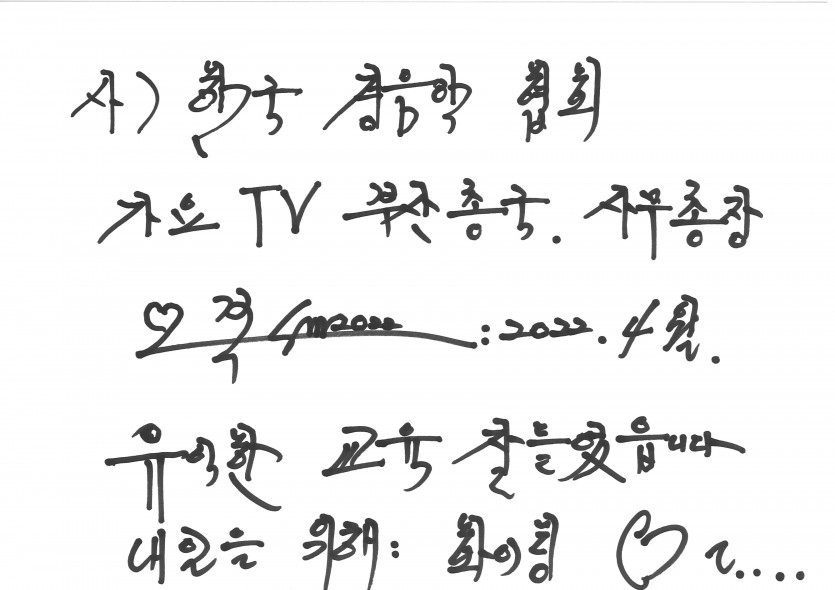 사) 한국 정음악 협회
가요 TV 부천총국. 사무총장
2022 : 2022. 4월.
유익한 교육 잘 들었읍니다
내일을 위해: 화이팅 ♡ ~....